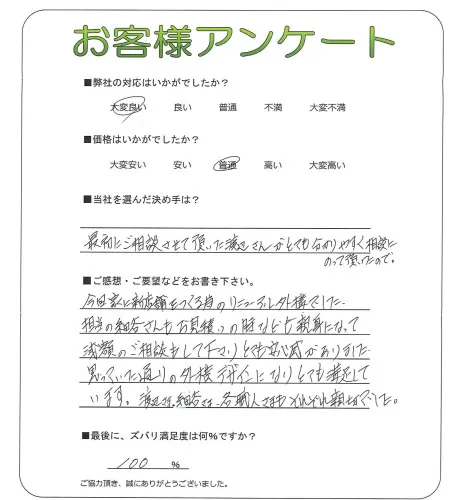 お客様アンケート
■弊社の対応はいかがでしたか？
大変良い 良い 普通 不満 大変不満
■価格はいかがでしたか？
大変安い 安い 普通 高い 大変高い
■当社を選んだ決め手は？
最初にご相談させて頂いた渡辺さんがとても分かりやすく相談に
のって頂いたので。
■ご感想・ご要望などをお書き下さい。
今回家に新店舗をつくる為のリニューアル外構でした。
担当の さんもお見積りの時なども親身になって
減額のご相談もして下さりとても安心感がありました
思っていた通りの外構デザインになりとても満足して
います。渡辺さん さん、各職人さまもそれぞれ親切でした。
■最後に、ズバリ満足度は何%ですか？
100 %
ご協力頂き、誠にありがとうございました。